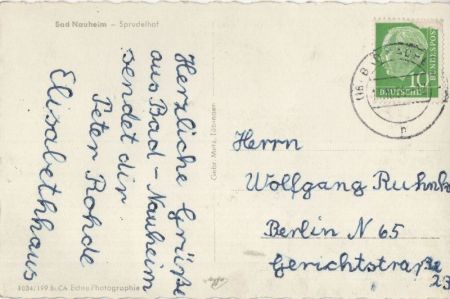 Bad Nauheim – Sprudelhof
Herzliche Grüße
aus Bad-Nauheim
sendet dir
Peter Rohde
Elisabethhaus
4034/199 B. CA Echte Photographie
Gebr. Metz, Tübingen
10
DEUTSCHE
BUNDESPOST
Herrn
Wolfgang Ruhnk
Berlin N 65
Gerichtstraße
23